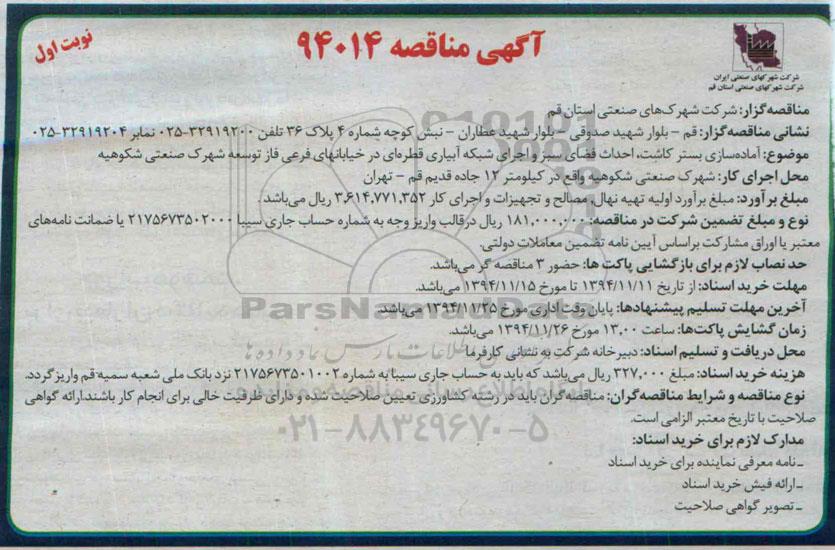 آگهی مناقصه ۹۴۰۱۴
نوبت اول
شرکت شهرکهای صنعتی ایران
شرکت شهرکهای صنعتی استان قم
مناقصه‌گزار: شرکت شهرک‌های صنعتی استان قم
نشانی مناقصه‌گزار: قم - بلوار شهید صدوقی - بلوار شهید عطاران - نبش کوچه شماره ۴ پلاک ۳۶ تلفن ۳۲۹۱۹۲۰۰-۰۲۵ نمابر ۳۲۹۱۹۲۰۴-۰۲۵
موضوع: آماده‌سازی بستر کاشت، احداث فضای سبز و اجرای شبکه آبیاری قطره‌ای در خیابانهای فرعی فاز توسعه شهرک صنعتی شکوهیه
محل اجرای کار: شهرک صنعتی شکوهیه واقع در کیلومتر ۱۲ جاده قدیم قم - تهران
مبلغ برآورد: مبلغ برآورد اولیه تهیه نهال، مصالح و تجهیزات و اجرای کار ۳,۶۱۴,۷۷۱,۳۵۲ ریال می‌باشد.
نوع و مبلغ تضمین شرکت در مناقصه: ۱۸۱,۰۰۰,۰۰۰ ریال درقالب واریز وجه به شماره حساب جاری سیبا ۲۱۷۵۶۷۳۵۰۲۰۰۰ یا ضمانت نامه‌های
معتبر یا اوراق مشارکت براساس آیین نامه تضمین معاملات دولتی.
حد نصاب لازم برای بازگشایی پاکت ها: حضور ۳ مناقصه گر می‌باشد.
مهلت خرید اسناد: از تاریخ ۱۳۹۴/۱۱/۱۱ تا مورخ ۱۳۹۴/۱۱/۱۵ می‌باشد.
آخرین مهلت تسلیم پیشنهادها: پایان وقت اداری مورخ ۱۳۹۴/۱۱/۲۵ می‌باشد.
زمان گشایش پاکت‌ها: ساعت ۱۳,۰۰ مورخ ۱۳۹۴/۱۱/۲۶ می‌باشد.
محل دریافت و تسلیم اسناد: دبیرخانه شرکت به نشانی کارفرما
هزینه خرید اسناد: مبلغ ۳۲۷,۰۰۰ ریال می‌باشد که باید به حساب جاری سیبا به شماره ۲۱۷۵۶۷۳۵۰۱۰۰۲ نزد بانک ملی شعبه سمیه قم واریز گردد.
نوع مناقصه و شرایط مناقصه‌گران: مناقصه‌گران باید در رشته کشاورزی تعیین صلاحیت شده و دارای ظرفیت خالی برای انجام کار باشند. ارائه گواهی
صلاحیت با تاریخ معتبر الزامی است.
مدارک لازم برای خرید اسناد:
ـ نامه معرفی نماینده برای خرید اسناد
ـ ارائه فیش خرید اسناد
ـ تصویر گواهی صلاحیت
ParsNamadData
۰۲۱-۸۸۳۴۹۶۷۰-۵